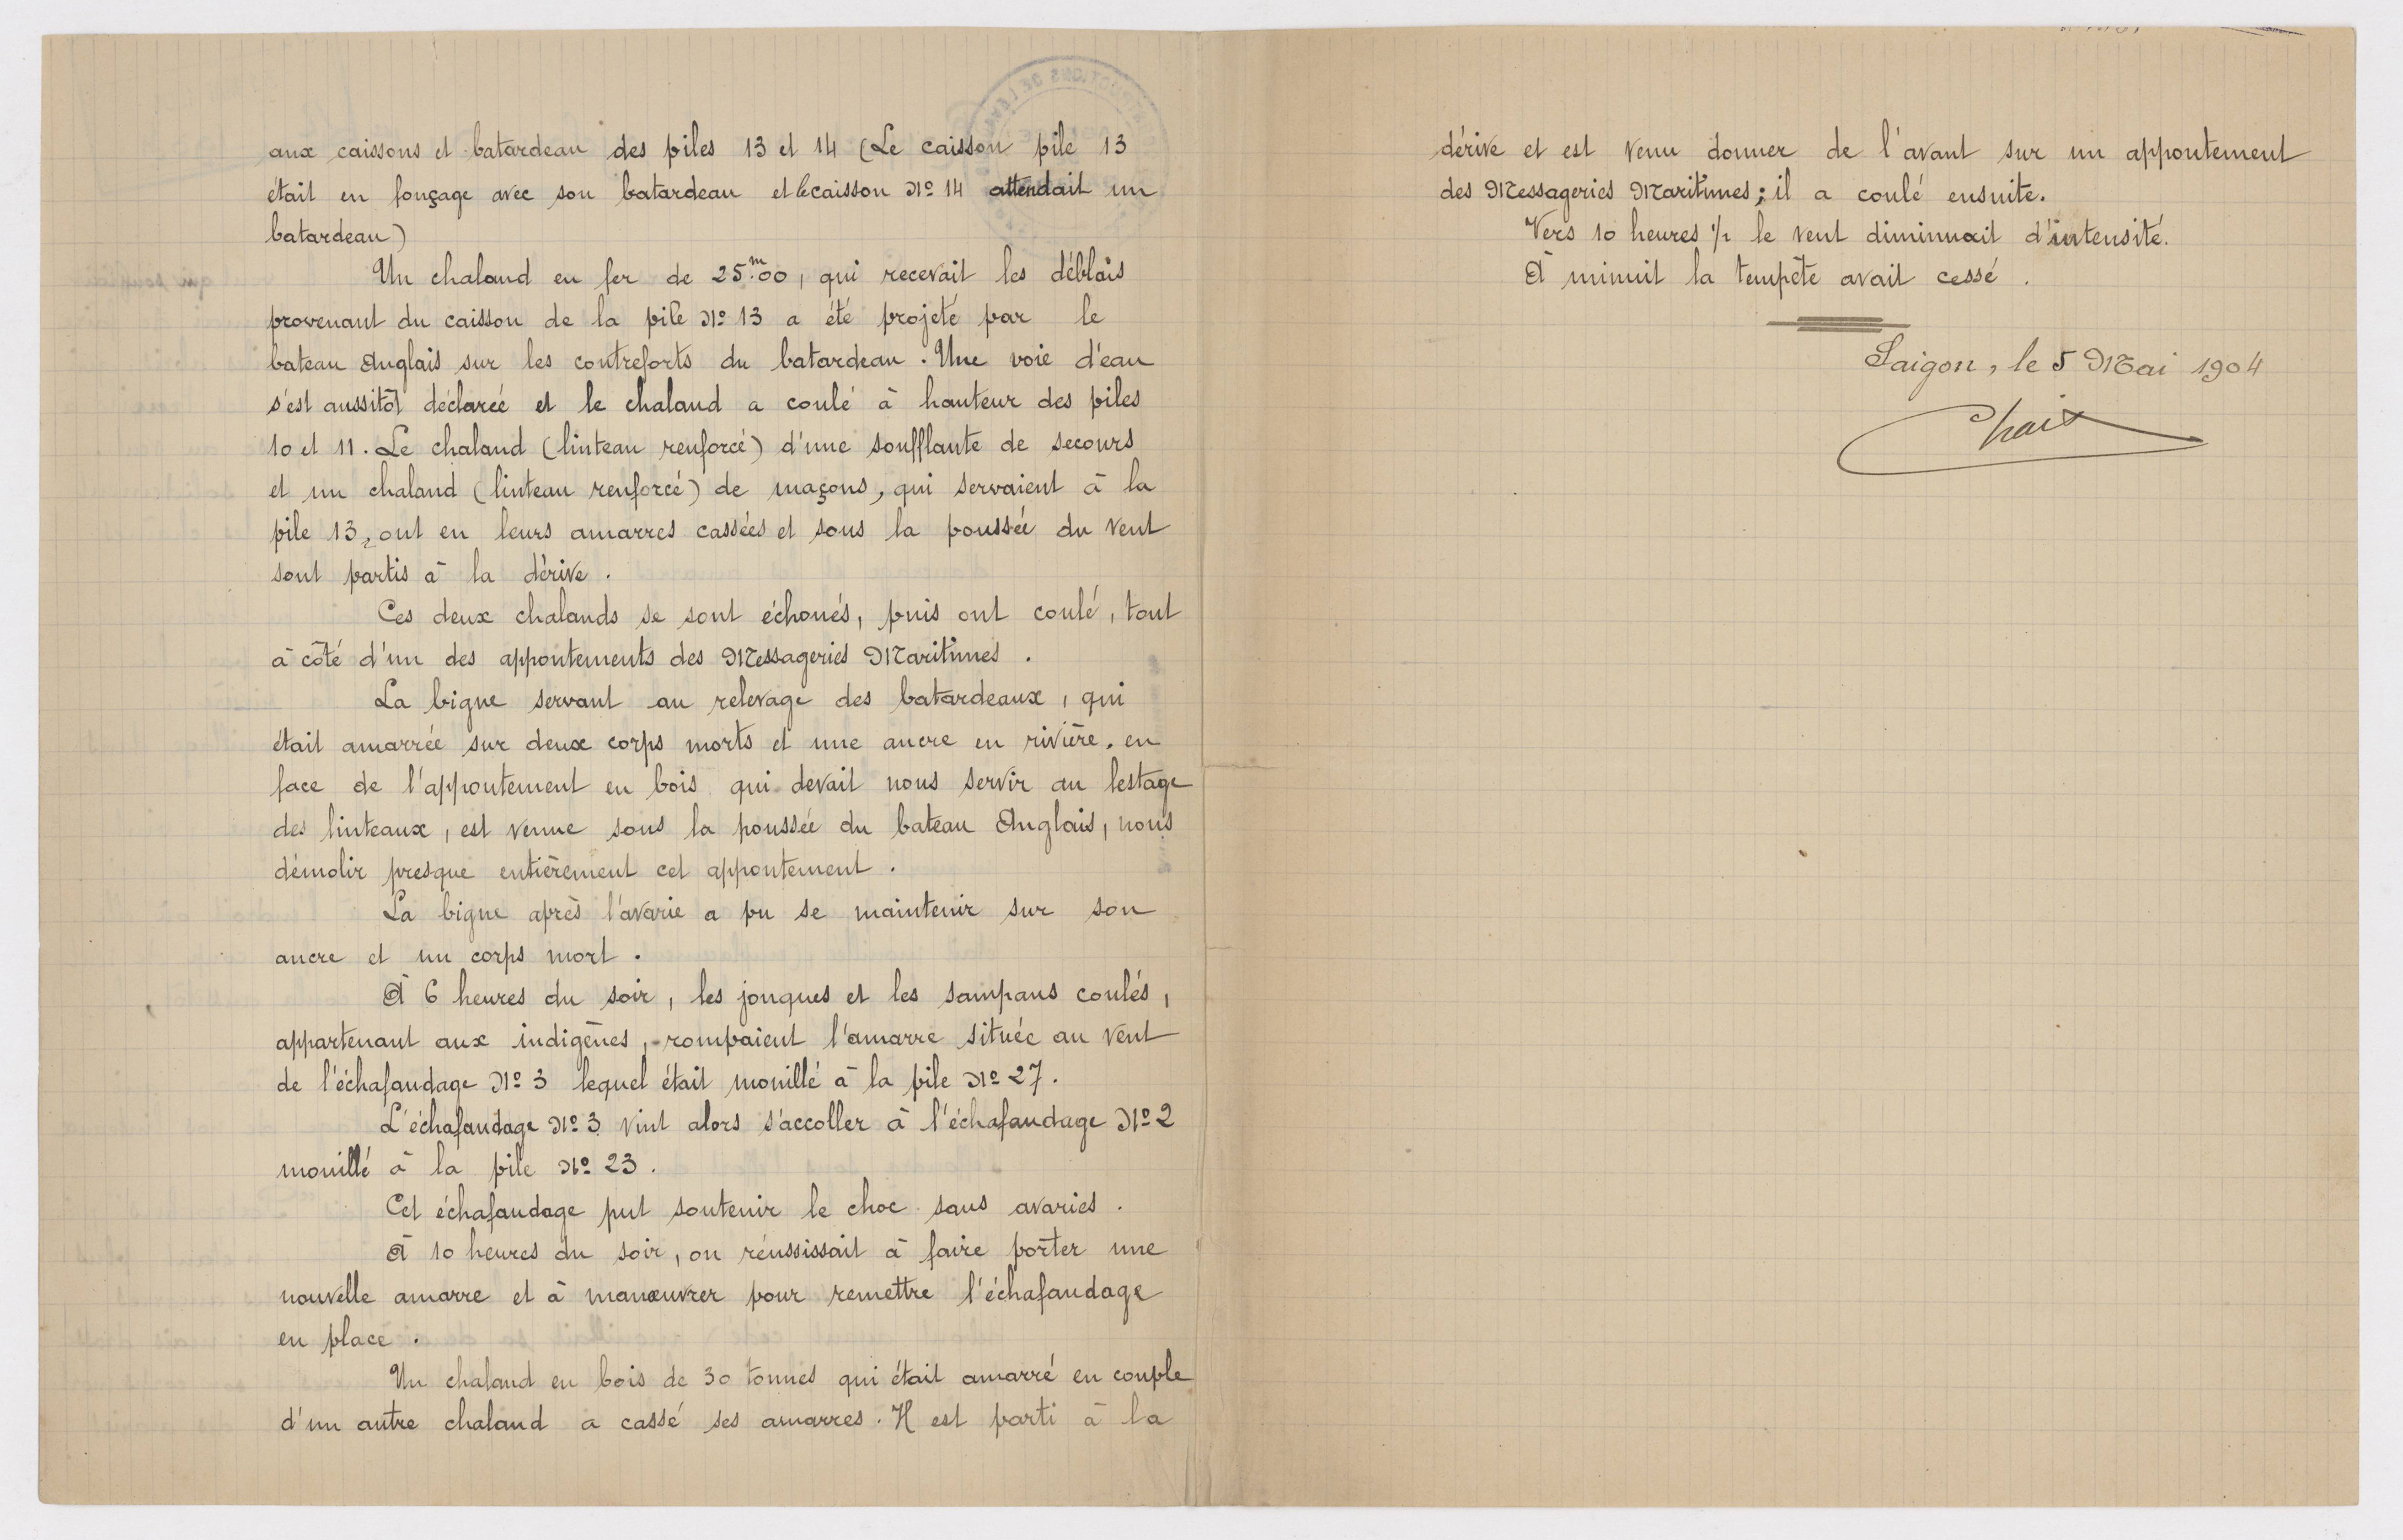 aux caissons et batardeau des piles 13 et 14 (Le caisson pile 13
était en fonçage avec son batardeau et le caisson No 14 attendait un
batardeau)
Un chaland en fer de 25m.00, qui recevait les déblais
provenant du caisson de la pile No 13 a été projeté par le
bateau Anglais sur les contreforts du batardeau. Une voie d'eau
s'est aussitôt déclarée et le chaland a coulé à hauteur des piles
10 et 11. Le chaland (linteau renforcé) d'une soufflante de secours
et un chaland (linteau renforcé) de maçons, qui servaient à la
pile 13, ont eu leurs amarres cassées et sous la poussée du vent
sont partis à la dérive.
Ces deux chalands se sont échoués, puis ont coulé, tout
à côté d'un des appontements des Messageries Maritimes.
La bigue servant au relevage des batardeaux, qui
était amarrée sur deux corps morts et une ancre en rivière, en
face de l'appontement en bois qui devait nous servir au lestage
des linteaux, est venue sous la poussée du bateau Anglais, nous
démolir presque entièrement cet appontement.
La bigue après l'avarie a pu se maintenir sur son
ancre et un corps mort.
A 6 heures du soir, les jonques et les sampans coulés,
appartenant aux indigènes, rompaient l'amarre située au vent
de l'échafaudage No 3 lequel était mouillé à la pile No 27.
L'échafaudage No 3 vint alors s'accoller à l'échafaudage No 2
mouillé à la pile No 23.
Cet échafaudage put soutenir le choc sans avaries.
A 10 heures du soir, on réussissait à faire porter une
nouvelle amarre et à manœuvrer pour remettre l'échafaudage
en place.
Un chaland en bois de 30 tonnes qui était amarré en couple
d'un autre chaland a cassé ses amarres. Il est parti à la
dérive et est venu donner de l'avant sur un appontement
des Messageries Maritimes; il a coulé ensuite.
Vers 10 heures 1/2 le vent diminuait d'intensité.
A minuit la tempête avait cessé.
Saigon, le 5 Mai 1904